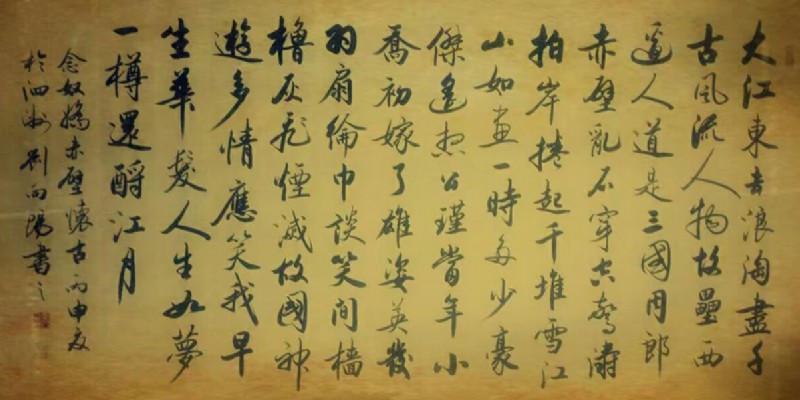 大江東去浪淘盡千
古風流人物故壘西
邊人道是三國周郎
赤壁亂石穿空驚濤
拍岸捲起千堆雪江
山如畫一時多少豪
傑遙想公瑾當年小
喬初嫁了雄姿英發
羽扇綸巾談笑間檣
櫓灰飛煙滅故國神
遊多情應笑我早
生華髮人生如夢
一樽還酹江月
念奴嬌赤壁懷古丙申夏
於泗洲劉向陽書之